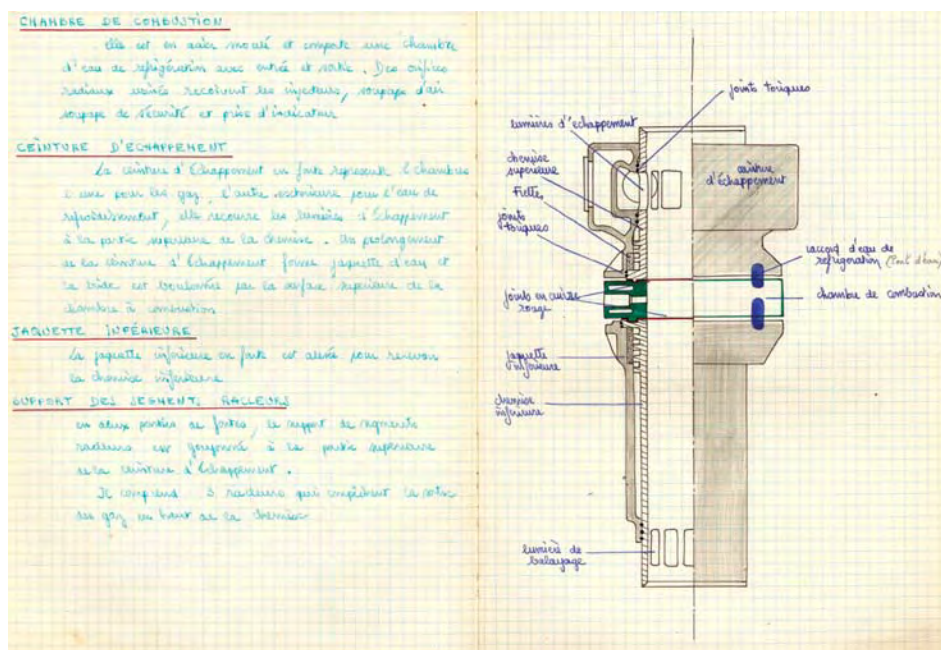 CHAMBRE DE COMBUSTION
elle est en acier moulé et comporte une chambre
d'eau de refrigération avec entrée et sortie. Des orifices
radiaux usinés recoivent les injecteurs, soupape d'air
soupape de sécurité et prise d'indicateur
CEINTURE D'ECHAPPEMENT
La ceinture d'Echappement en fonte represente 2 chambres
l'une pour les gaz, l'autre extérieure pour l'eau de
refroidissement, elle recouvre les lumières d'Echappement
à la partie superieure de la chemise. Un prolongement
de la ceinture d'Echappement forme jaquette d'eau et
la bride est boulonnée sur la surface superieure de la
chambre à combustion
JAQUETTE INFÉRIEURE
La jaquette inférieure en fonte est alesée pour recevoir
la chemise inférieure
SUPPORT DES SEGMENTS RACLEURS
en deux parties de fontes, le support de segments
racleurs est goujonné à la partie superieure
de la ceinture d'Echappement.
Il comprend racleurs qui empêchent la sortie
des gaz en haut de la chemise
joints toriques
lumières d'echappement
chemise
superieure
Frettes
joints
toriques
ceinture
d'échappement
raccord d'eau de
refrigeration
chambre de combustion
joints en cuivre
rouge
jaquette
inférieure
chemise
inférieure
lumière de
balayage